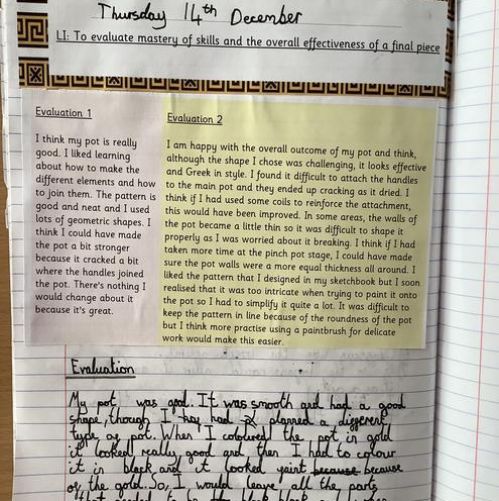 Thursday 14th December
LI: To evaluate mastery of skills and the overall effectiveness of a final piece
Evaluation 1
I think my pot is really
good. I liked learning
about how to make the
different elements and how
to join them. The pattern is
good and neat and I used
lots of geometric shapes. I
think I could have made
the pot a bit stronger
because it cracked a bit
where the handles joined
the pot. There's nothing I
would change about it
because it's great.
Evaluation 2
I am happy with the overall outcome of my pot and think,
although the shape I chose was challenging, it looks effective
and Greek in style. I found it difficult to attach the handles
to the main pot and they ended up cracking as it dried. I
think if I had used some coils to reinforce the attachment,
this would have been improved. In some areas, the walls of
the pot became a little thin so it was difficult to shape it
properly as I was worried about it breaking. I think if I had
taken more time at the pinch pot stage, I could have made
sure the pot walls were a more equal thickness all around. I
liked the pattern that I designed in my sketchbook but I soon
realised that it was too intricate when trying to paint it onto
the pot so I had to simplify it quite a lot. It was difficult to
keep the pattern in line because of the roundness of the pot
but I think more practise using a paintbrush for delicate
work would make this easier.
Evaluation
My pot was good. It was smooth and had a good
shape, though I had planned a different
type of pot. When I coloured the pot in gold
it looked really good and then I had to colour
it in black and it looked because because
of the gold. So, I would leave all the parts
that needed to be black